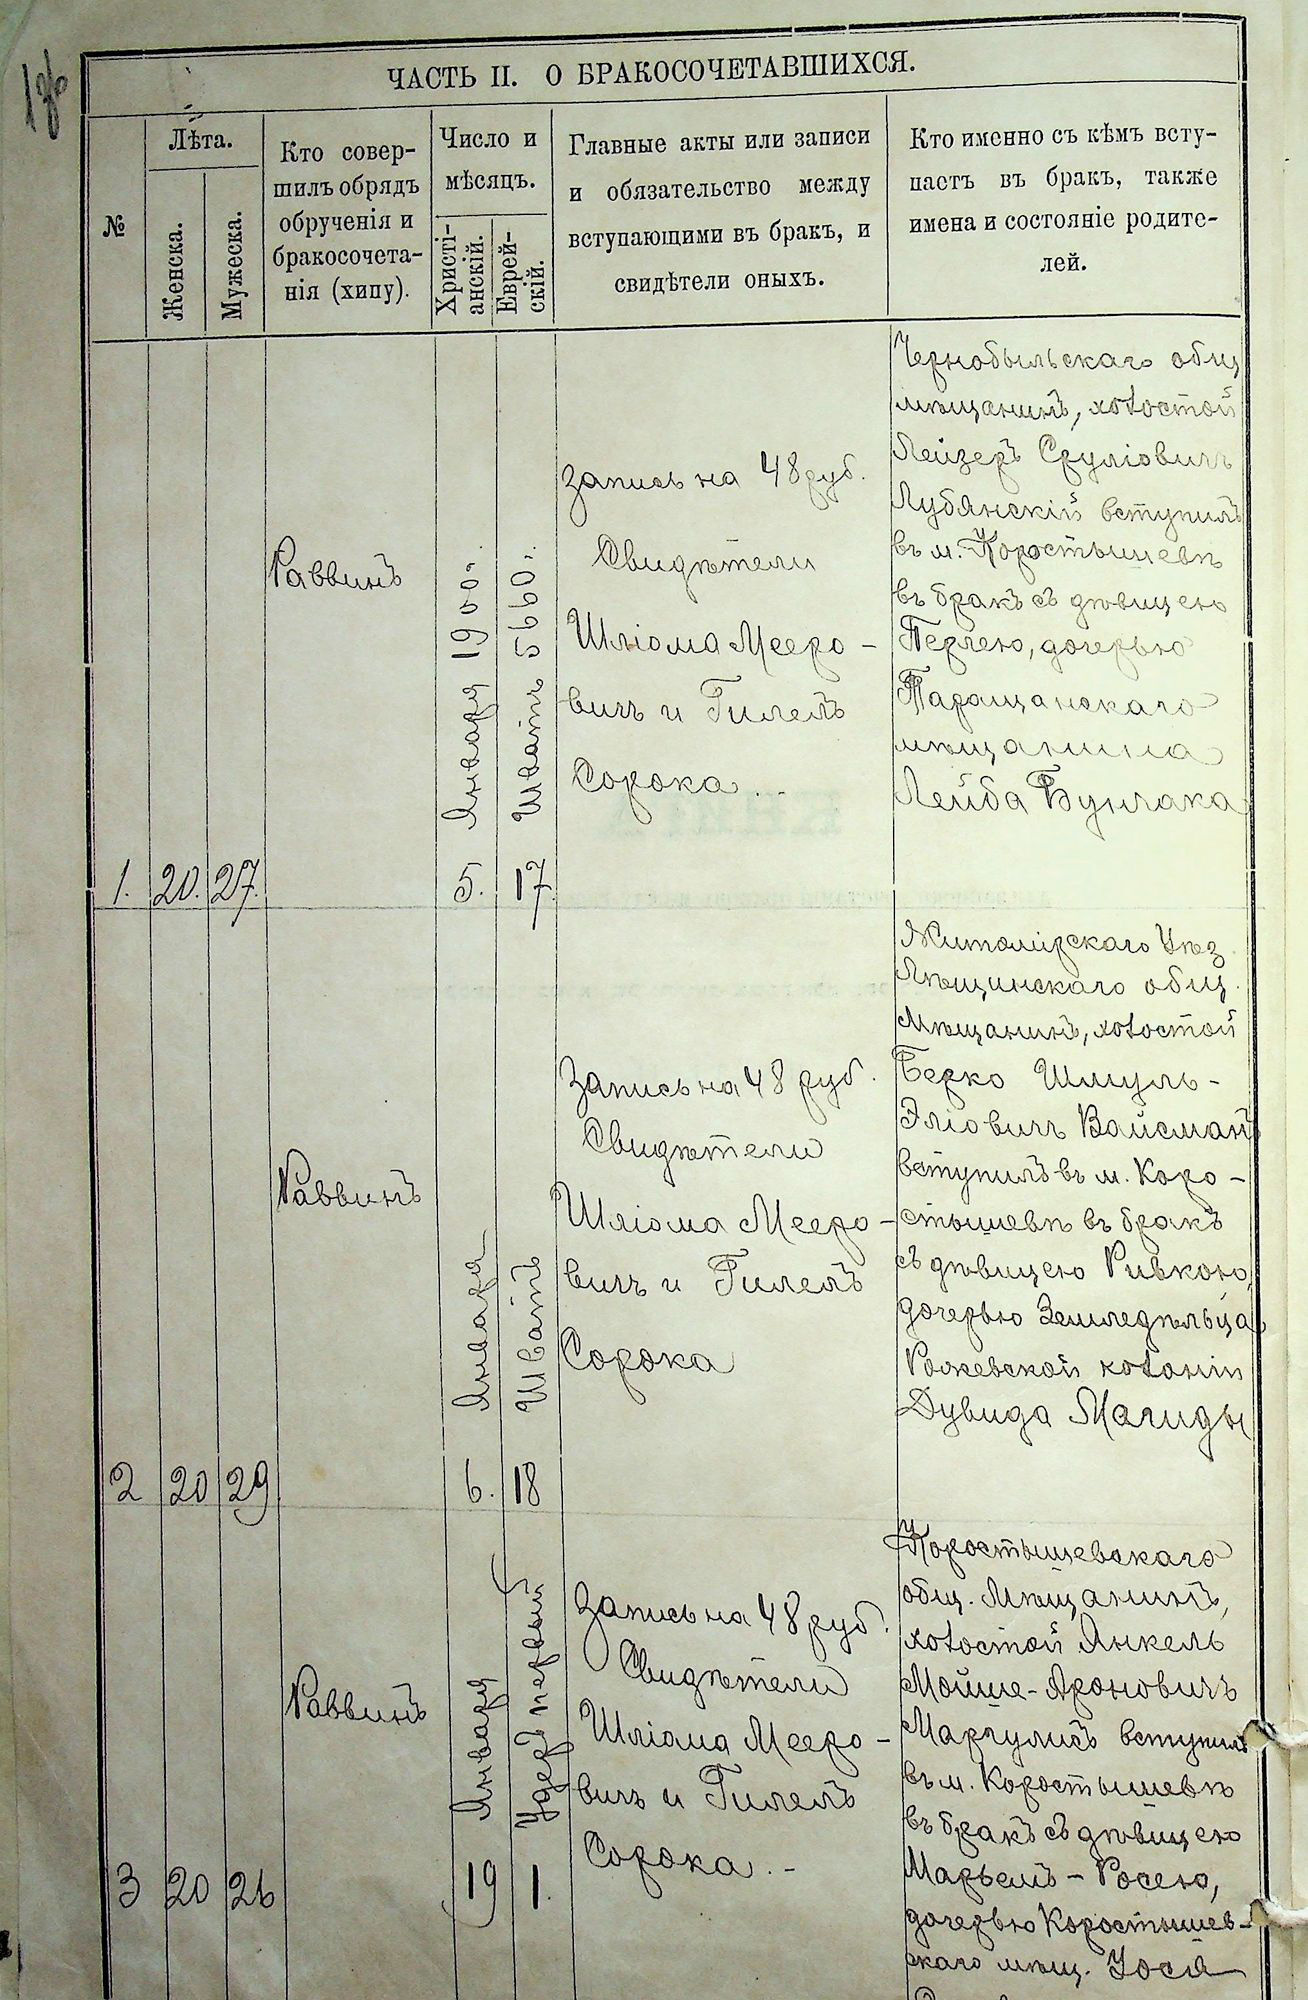 ЧАСТЬ II. О БРАКОСОЧЕТАВШИХСЯ.
№
Лѣта.
Женска.
Мужеска.
Кто совер-
шилъ обрядъ
обрученія и
бракосочета-
нія (хипу).
Число и
мѣсяцъ.
Христі-
анскій.
Еврей-
скій.
Главные акты или записи
и обязательство между
вступающими въ бракъ, и
свидѣтели оныхъ.
Кто именно съ кѣмъ всту-
паетъ въ бракъ, также
имена и состояніе родите-
лей.
1. 20. 27.
Раввинъ
Января 1900.
5.
Шватъ 5660.
17
Запись на 48 руб.
Свидѣтели
Шліома Мееро-
вичъ и Гилелъ
Сорока
Чернобыльскаго общ
мѣщанинъ, холостой
Лейзеръ Сруліовичъ
Лубянскій вступилъ
въ м. Коростышевѣ
въ бракъ съ дѣвицею
Перлею, дочерью
Таращанскаго
мѣщанина
Лейба Бунчака
2 20 29
Раввинъ
Января
6.
Шватъ
18
Запись на 48 руб.
Свидѣтели
Шліома Мееро-
вичъ и Гилелъ
Сорока
Житомірскаго Уѣз.
Лѣщинскаго общ.
Мѣщанинъ, холостой
Берко Шмуль-
Эліовичъ Вайсманъ
вступилъ въ м. Коро-
стышевѣ въ бракъ
съ дѣвицею Ривкою,
дочерью Земледѣльца
Рожевской колоніи
Дувида Магиды
3 20 26
Раввинъ
Января
19
Удеръ первый
1.
Запись на 48 руб.
Свидѣтели
Шліома Мееро-
вичъ и Гилелъ
Сорока
Коростышевскаго
общ. Мѣщанинъ,
холостой Янкель
Мойше-Ароновичъ
Маргулисъ вступилъ
въ м. Коростышевѣ
въ бракъ съ дѣвицею
Марьемъ-Росею,
дочерью Коростышев-
скаго мѣщ. Іося